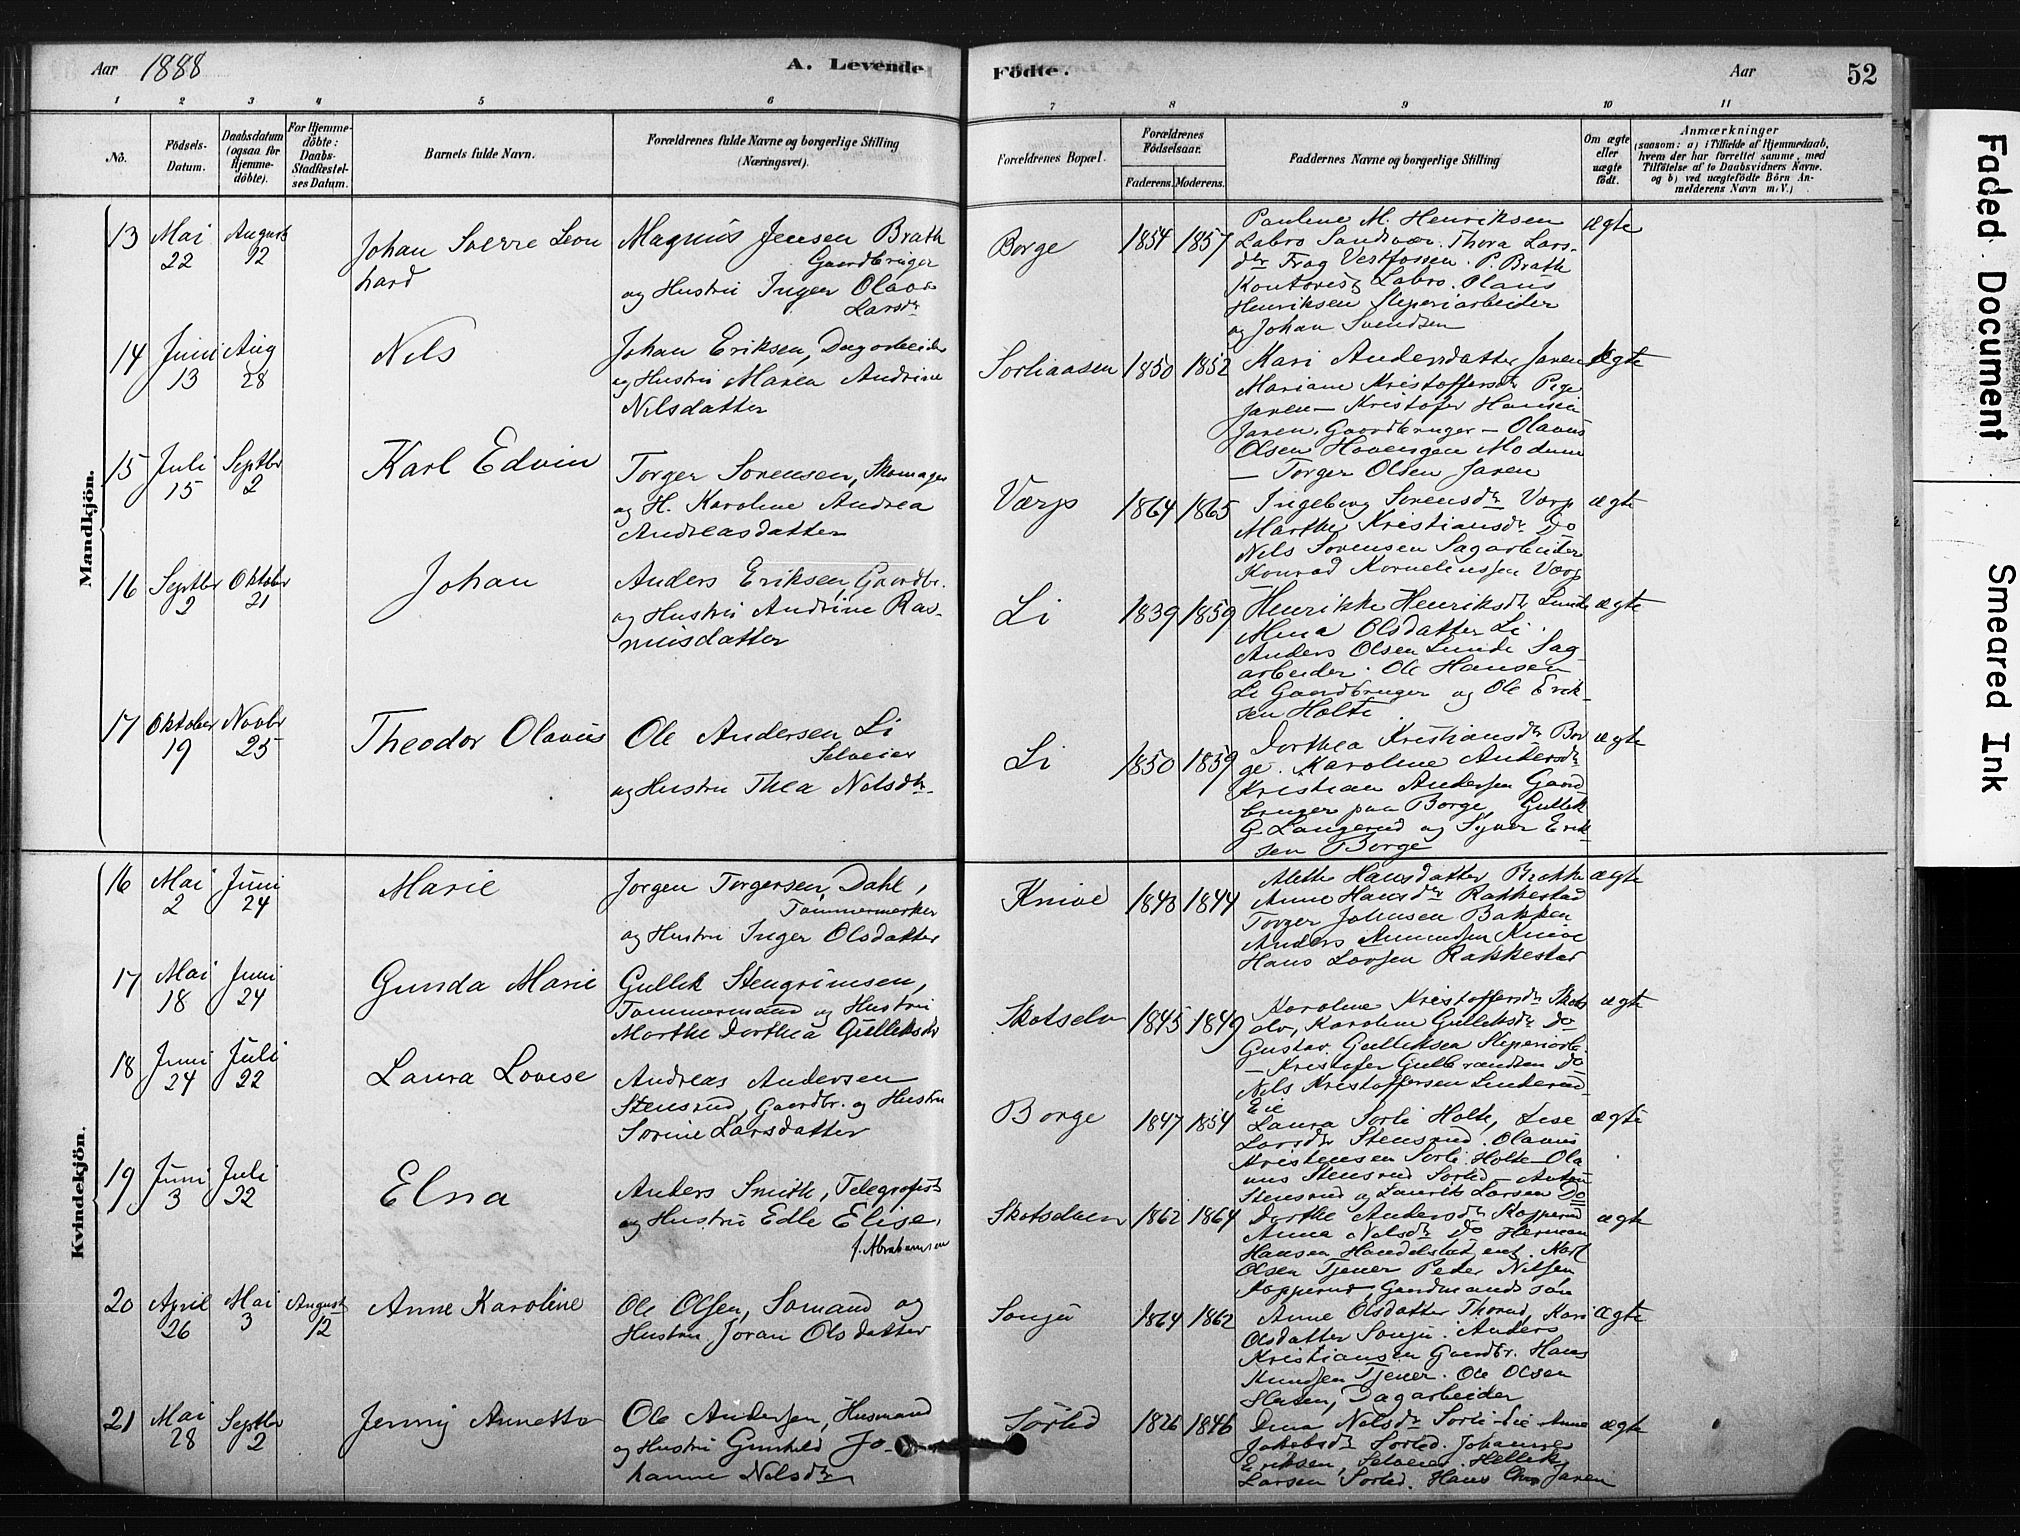 Aar 1888
A. Levende Födte.
Aar
52
1 2 3 4 5 6 7 8 9 10 11
No.
Födsels-Datum.
Daabsdatum (ogsaa for Hjemme-döbte).
For Hjemme-döbte: Daabs-Stadfæstel-ses Datum.
Barnets fulde Navn.
Forældrenes fulde Navne og borgerlige Stilling (Næringsvei).
Forældrenes Bopæl.
Forældrenes Födselsaar.
Faderens. Moderens.
Faddernes Navne og borgerlige Stilling.
Om ægte eller uægte födt.
Anmærkninger (saasom: a) i Tilfælde af Hjemmedaab, hvem der har forrettet samme, med Tilföielse af to Daabsvidners Navne, og b) ved uægtefödte Börn An-melderens Navn m.V.)
Mandkjön.
13 Mai 22 August 12
Johan Sverre Leon
hard
Magnus Jensen Brath
Gaardbruger
og Hustru Inger Olava
Larsdr
Borge 1854 1857
Pauline M. Henriksen
Labro Sandsvær. Thora Lars-
dtr Frog Vestfossen. P. Brath
Kontorist Labro. Olaus
Henriksen Sliperiarbeider
og Johan Svendsen
ægte
14 Juni 13 Aug 28
Nils
Johan Eriksen, Dagarbeider
og Hustru Maren Andrine
Nilsdatter
Sorliaasen 1850 1852
Kari Andersdatter Jaren
Mariane Kristoffersdr Pige
Jaren - Kristofer Hansen
Jaren, Gaardbruger - Olavus
Olsen Hovengen Modum
- Torger Olsen Jaren
Ægte
15 Juli 15 Septbr 2
Karl Edvin
Torger Sorensen, Skomager
og H. Karoline Andrea
Andreasdatter
Værp 1864 1865
Ingeborg Sorensdr Værp
Marthe Kristiansdr Do
Nils Sorensen Sagarbeider
Konrad Korneliussen Værp
ægte
16 Septbr 2 Oktobr 21
Johan
Anders Eriksen, Gaardbr.
og Hustru Andrine Ras-
musdatter
Li 1839 1859
Henrikke Henriksdr Lunde
Mina Olsdatter Li.
Anders Olsen Lunde Sag-
arbeider. Ole Hansen
Li Gaardbruger og Ole Erik-
sen Holte.
ægte
17 Oktober 19 Novbr 25
Theodor Olavus
Ole Andersen Li
Selveier
og Hustru Thea Nilsdtr.
Li 1850 1859
Dorthea Kristiansdr Bor
ge. Karoline Andersdr
Kristian Andersen Gaard
bruger paa Borge, Gullik
G. Langerud og Syver Erik
sen Borge
ægte
Kvindekjön.
16 Mai 2 Juni 24
Marie
Jorgen Torgersen Dahl,
Tommermerker
og Hustru Inger Olsdatter
Knive 1848 1844
Alethe Hansdatter Brekke
Anne Hansdr Rakkestad
Torger Johnsen Bakken
Anders Amundsen Knive
Hans Larsen Rakkestad
ægte
17 Mai 18 Juni 24
Gunda Marie
Gullik Stengrimsen,
Tommermand og Hustru
Marthe Dorthea Gulliksdr
Skotselv 1845 1849
Karoline Kristoffersdr Skots
elv, Karoline Gulliksdr Do
Gustav Gulliksen Sliperiarb.
- Kristofer Gulbrandsen Do
Nils Kristoffersen Linderud
Eie
ægte
18 Juni 24 Juli 22
Laura Lovise
Andreas Andersen
Stensrud, Gaardbr. og Hustru
Sorine Larsdatter
Borge 1847 1854
Laura Sorli Holte, Lise
Larsdr Stensrud. Olavus
Kristensen Sorli. Holte. Ola
vus Stensrud Sorted - Anton
Stensrud og Laurits Larsen Do
ægte
19 Juni 3 Juli 22
Elna
Anders Smith, Telegrafist
og Hustru Edle Elise,
f. Abrahamsen
Skotselven 1862 1864
Dorthe Andersdr Kopperud
Anna Nilsdr Do Herman
Hansen Handelsbetjent. Karl
Olsen Tjener Peder Nilsen
Kopperud Gaardmands søn
ægte
20 April 26 Mai 3 August 12
Anne Karoline
Ole Olsen, Somand og
Hustru Joran Olsdatter
Sonju 1864 1862
Anne Olsdatter Thorud, Kari
Olsdatter Sonju. Anders
Kristiansen Gaardbr. Hans
Knudsen Tjener. Ole Olsen
Dagarbeider
Ægte
21 Mai 28 Septbr 2
Jenny Annette
Ole Andersen, Husmand
og Hustru Gunhild Jo-
hanne Nilsdr
Sorted 1826 1846
Dina Nilsdr Sorli Eie Anne
Jakobsdr Sorted. Johannes
Eriksen, Selveier. Hellik
Larsen Sorted. Hans Chr. Jaren
ægte
Faded Document
Smeared Ink